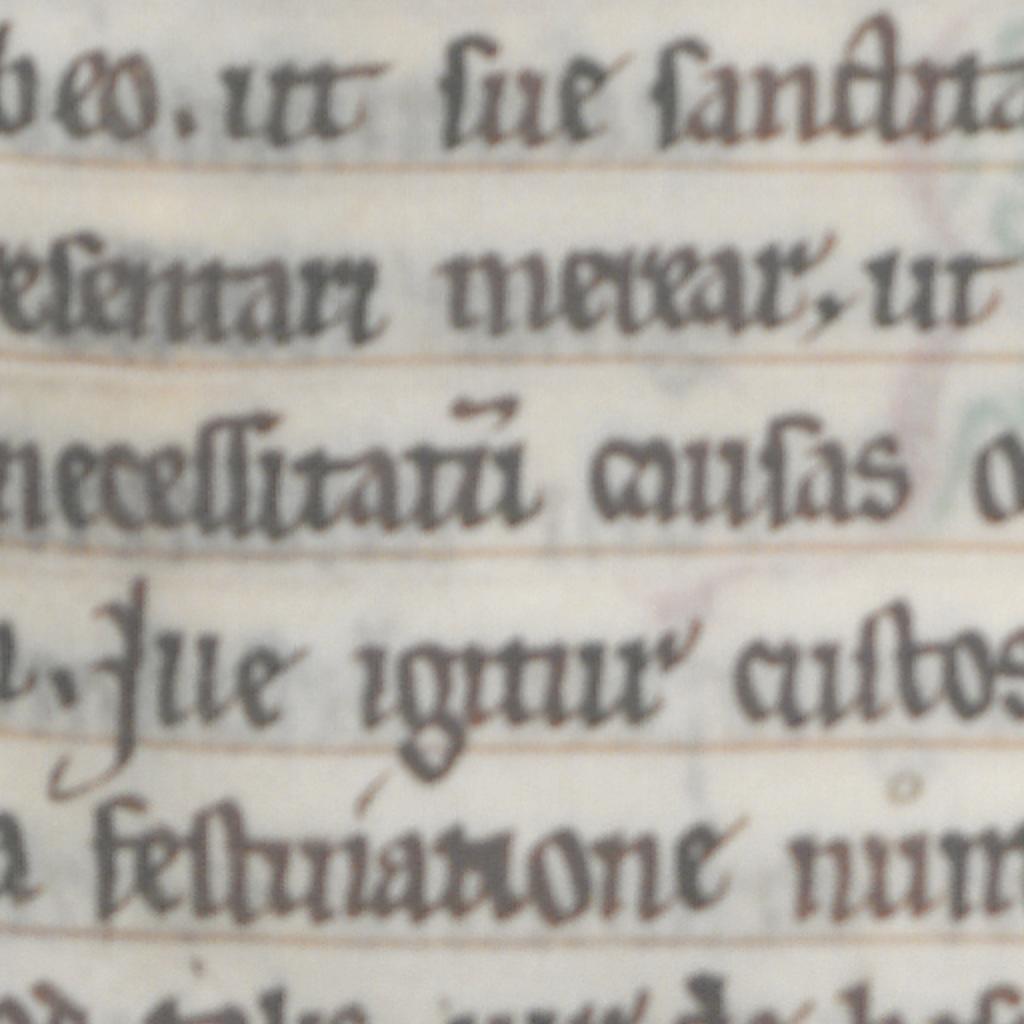 beo. ut sue sanctita
esentari merear, ut
necessitatū causas o
. Jlle igitur custos
festiuiatione num